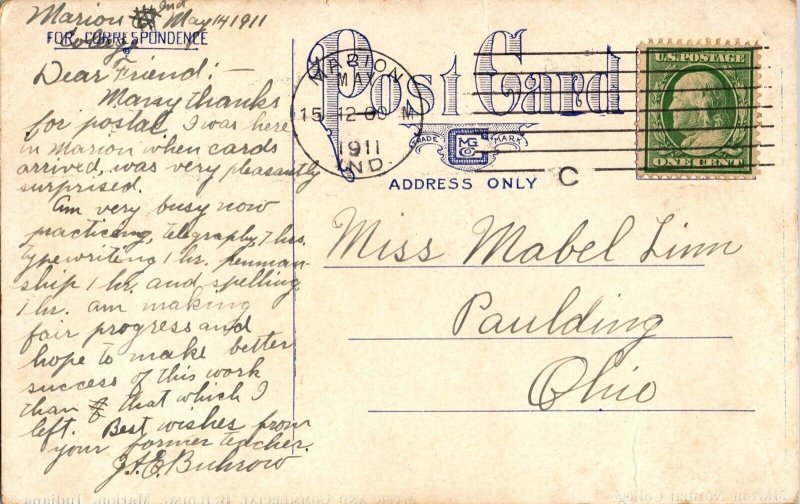 Marion Ind May 14 1911
College
FOR CORRESPONDENCE
Dear Friend:—
Many thanks
for postal. I was here
in Marion when cards
arrived, was very pleasantly
surprised.
Am very busy now
practicing, telegraphy, 7 hrs.
typewriting 1 hr. penman-
ship 1 hr. and spelling
1 hr. am making
fair progress and
hope to make better
success of this work
than that which I
left. Best wishes from
your former teacher.
J.A.E. Buhrow
Post Card
TRADE MARK
ADDRESS ONLY
MARION
MAY
15 12-00 M
1911
IND.
C
U.S. POSTAGE
ONE CENT
Miss Mabel Linn
Paulding
Ohio
Marion Normal College
Music and Commercial Building, Marion, Indiana